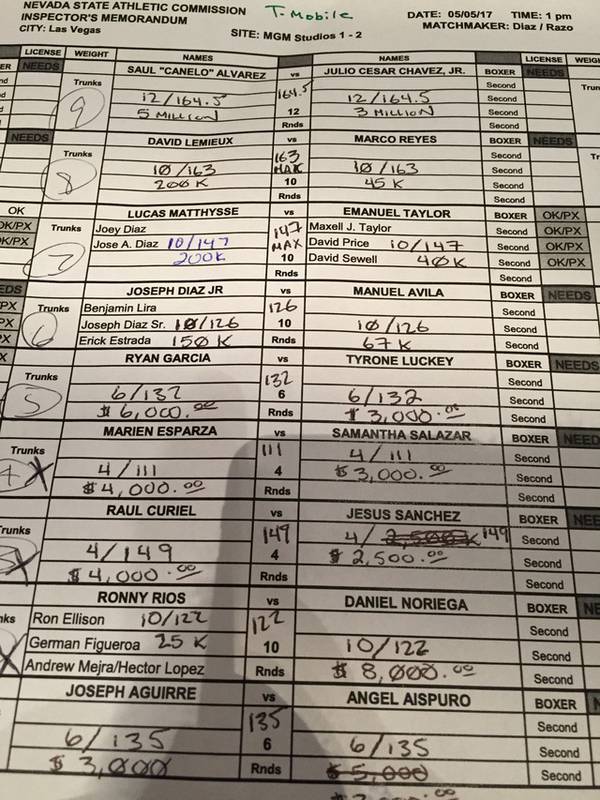 NEVADA STATE ATHLETIC COMMISSION T-Mobile DATE: 05/05/17 TIME: 1 pm
INSPECTOR'S MEMORANDUM MATCHMAKER: Diaz / Razo
CITY: Las Vegas SITE: MGM Studios 1 - 2
LICENSE WEIGHT NAMES NAMES LICENSE WEIG
ER NEEDS SAUL "CANELO" ALVAREZ vs JULIO CESAR CHAVEZ, JR. BOXER NEEDS
nd Trunks 164.5 Second Trun
9 12/164.5 12/164.5 Second
5 MILLION 12 3 MILLION Second
Rnds Second
NEEDS DAVID LEMIEUX vs MARCO REYES BOXER NEEDS
Trunks 163 Second
8 10/163 MAX 10/163 Second
200K 10 45K Second
Rnds Second
OK LUCAS MATTHYSSE vs EMANUEL TAYLOR BOXER OK/PX
OK/PX Trunks Joey Diaz 147 Maxell J. Taylor Second OK/PX
K/PX Jose A. Diaz 10/147 MAX David Price 10/147 Second OK/PX
7 200K 10 David Sewell 40K Second OK/PX
Rnds Second
EDS JOSEPH DIAZ JR vs MANUEL AVILA BOXER NEEDS
PX Trunks Benjamin Lira 126 Second
PX 6 Joseph Diaz Sr. 10/126 10 10/126 Second
PX Erick Estrada 150K Rnds 67K Second
X RYAN GARCIA vs TYRONE LUCKEY BOXER NEEDS
Trunks 132 Second
5 6/132 6 6/132 Second
$6,000.00 Rnds $3,000.00 Second
MARIEN ESPARZA vs SAMANTHA SALAZAR BOXER NEED
Trunks 111 Second
4 4/111 4 4/111 Second
$4,000.00 $3,000.00
Rnds Second
RAUL CURIEL vs JESUS SANCHEZ BOXER NEE
Trunks 149 4/ 2,500K 149 Second
4/149 4 $2,500.00 Second
$4,000.00 Rnds Second
RONNY RIOS vs DANIEL NORIEGA BOXER NE
nks Ron Ellison 10/122 122 Second
German Figueroa 25K 10 10/122 Second
Andrew Mejra/Hector Lopez Rnds $8,000.00 Second
JOSEPH AGUIRRE vs ANGEL AISPURO BOXER N
135 Second
6/135 6 6/135 Second
$3,000 Rnds $5,000 Second